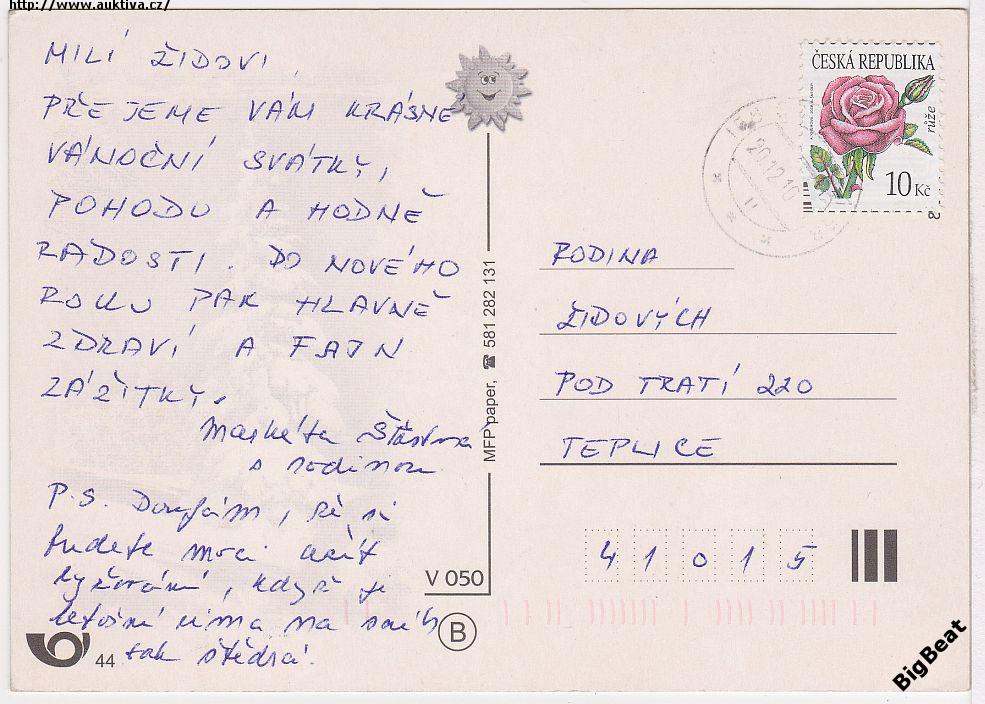 http://www.auktiva.cz/
MILÍ ŽIDOVI,
PŘEJEME VÁM KRÁSNÉ
VÁNOČNÍ SVÁTKY,
POHODU A HODNĚ
RADOSTI. DO NOVÉHO
ROKU PAK HLAVNĚ
ZDRAVÍ A FAJN
ZÁŽITKY.
Markéta Šťastná
s rodinou
P.S. Doufám, že si
budete moci užít
lyžování, když je
letošní zima na sníh
tak štědrá.
44
V 050
B
MFP paper, ☎ 581 282 131
ČESKÁ REPUBLIKA
růže
10 Kč
20.12.10
RODINA
ŽIDOVÝCH
POD TRATÍ 220
TEPLICE
41015
BigBeat